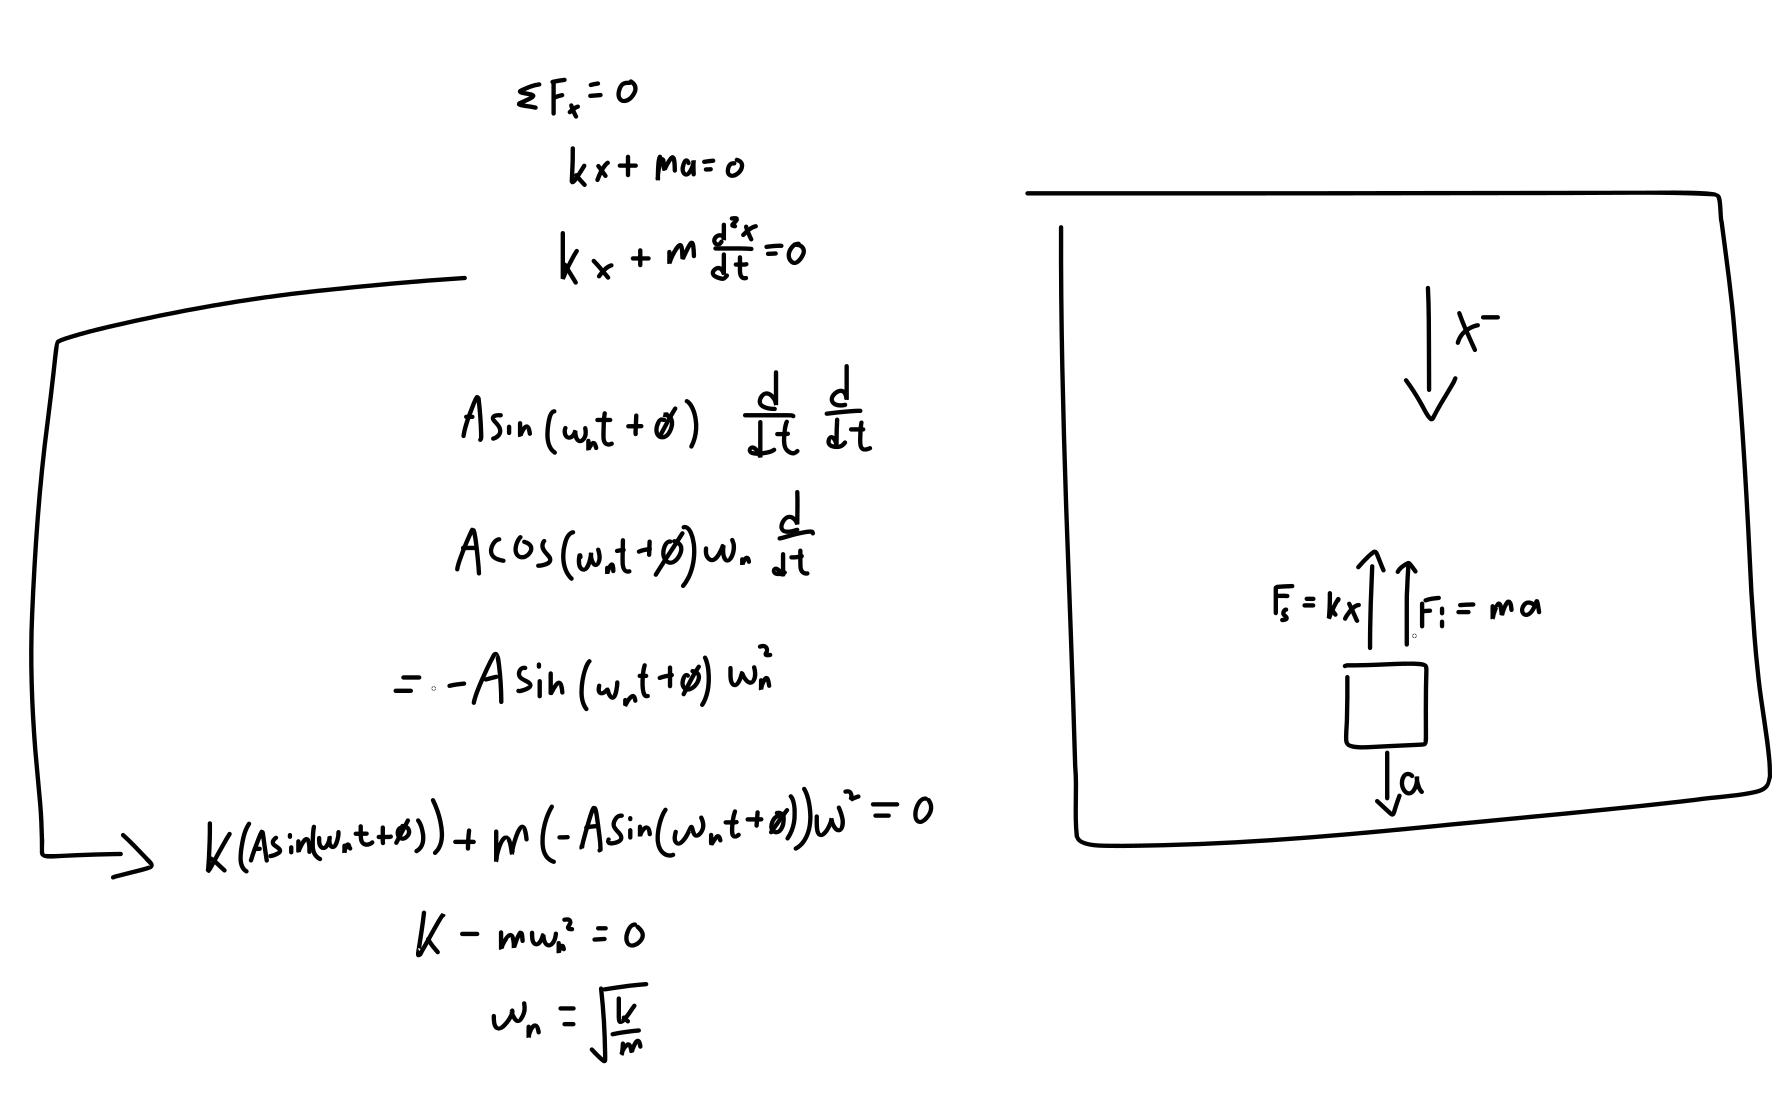 ΣFₓ = 0
kx + ma = 0
kx + m d²x/dt = 0
A sin(ωₙt + ø) d/dt d/dt
A cos(ωₙt + ø)ωₙ d/dt
= -A sin(ωₙt + ø) ωₙ²
k(A sin(ωₙt + ø)) + m(-A sin(ωₙt + ø))ω² = 0
K - mωₙ² = 0
ωₙ = √(k/m)
x⁻
Fₛ = kx
Fᵢ = ma
a